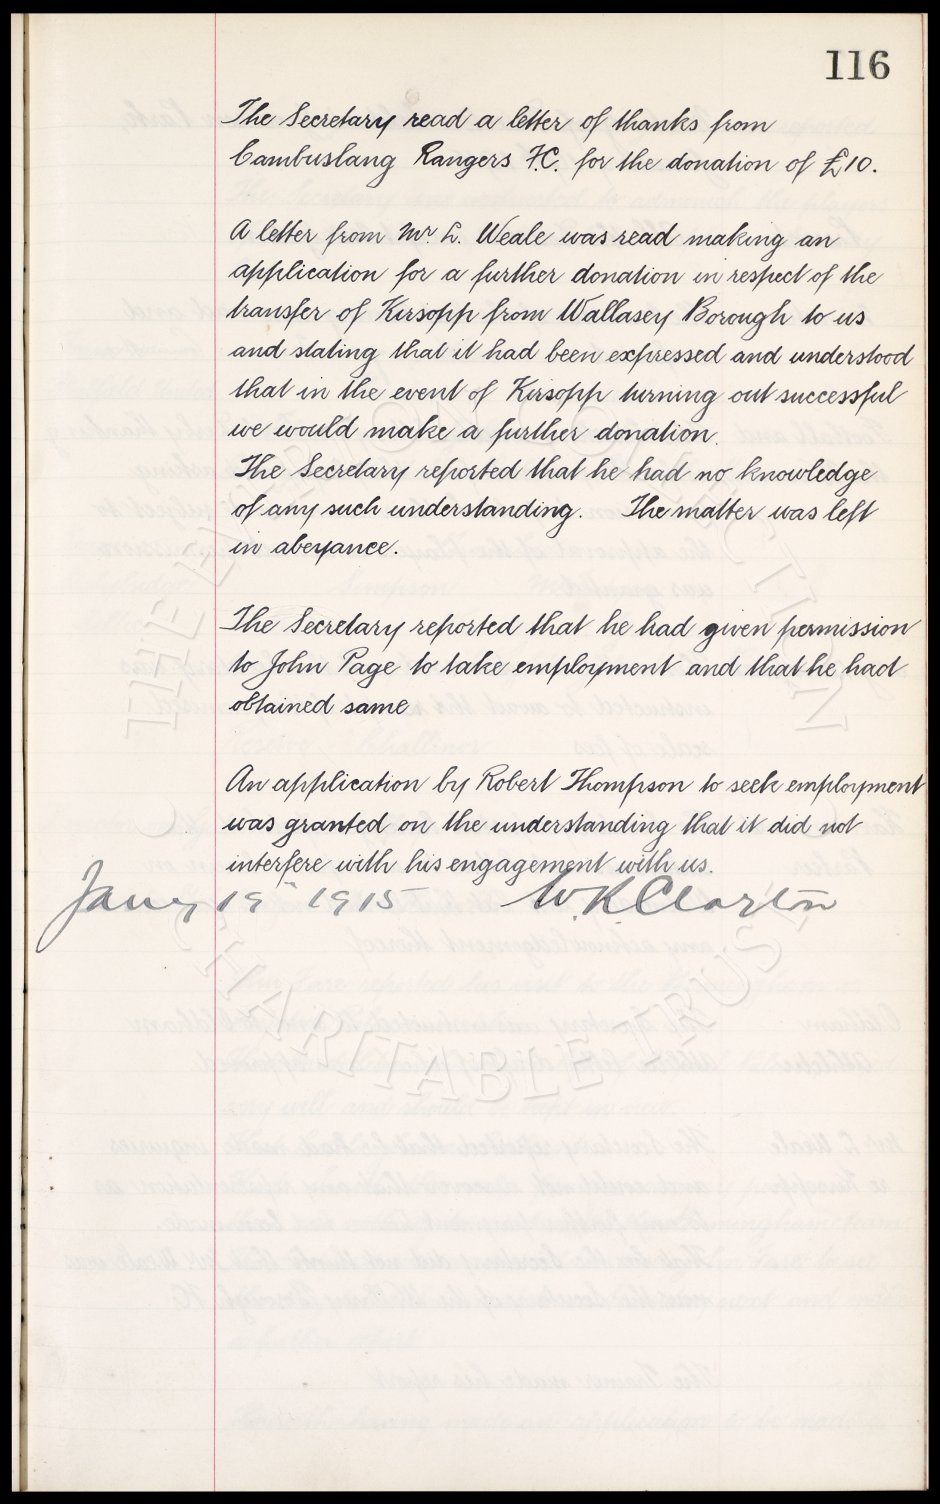 116
The Secretary read a letter of thanks from
Cambuslang Rangers F.C. for the donation of £10.
A letter from Mr. L. Weale was read making an
application for a further donation in respect of the
transfer of Kirsopp from Wallasey Borough to us
and stating that it had been expressed and understood
that in the event of Kirsopp turning out successful
we would make a further donation.
The Secretary reported that he had no knowledge
of any such understanding. The matter was left
in abeyance.
The Secretary reported that he had given permission
to John Page to take employment and that he had
obtained same
An application by Robert Thompson to seek employment
was granted on the understanding that it did not
interfere with his engagement with us.
Jany 19 1915 W.R. Clayton
THE EVERTON COLLECTION
CHARITABLE TRUST